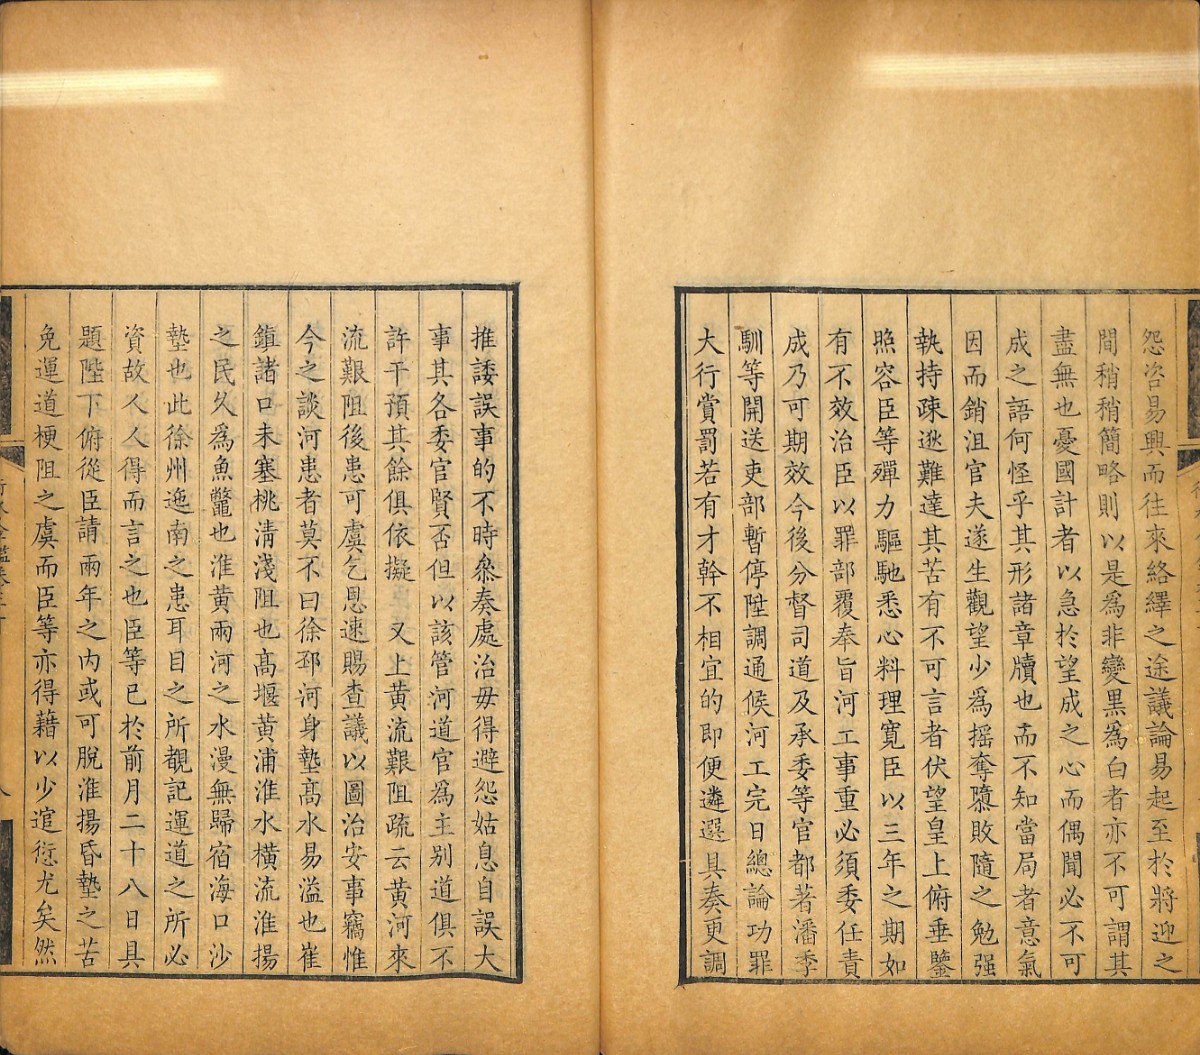 怨咨易興而往來絡繹之途議論易起至於將迎之
間稍稍簡略則以是爲非變黑爲白者亦不可謂其
盡無也憂國計者以急於望成之心而偶聞必不可
成之語何怪乎其形諸章牘也而不知當局者意氣
因而銷沮官夫遂生觀望少爲摇奪隳敗隨之勉强
執持疎逖難達其苦有不可言者伏望皇上俯垂鑒
照容臣等殫力驅馳悉心料理寬臣以三年之期如
有不效治臣以罪部覆奉旨河工事重必須委任責
成乃可期效今後分督司道及承委等官都著潘季
馴等開送吏部暫停陞調通候河工完日總論功罪
大行賞罰若有才幹不相宜的即便遴選具奏更調
推諉誤事的不時叅奏處治毋得避怨姑息自誤大
事其各委官賢否但以該管河道官爲主别道俱不
許干預其餘俱依擬 又上黄流艱阻疏云黄河來
流艱阻後患可虞乞恩速賜查議以圖治安事竊惟
今之談河患者莫不曰徐邳河身墊髙水易溢也崔
鎮諸口未塞桃淸淺阻也髙堰黄浦淮水橫流淮揚
之民久爲魚鼈也淮黄兩河之水漫無歸宿海口沙
墊也此徐州迤南之患耳目之所覩記運道之所必
資故人人得而言之也臣等已於前月二十八日具
題陛下俯從臣請兩年之内或可脫淮揚昏墊之苦
免運道梗阻之虞而臣等亦得藉以少逭愆尤矣然